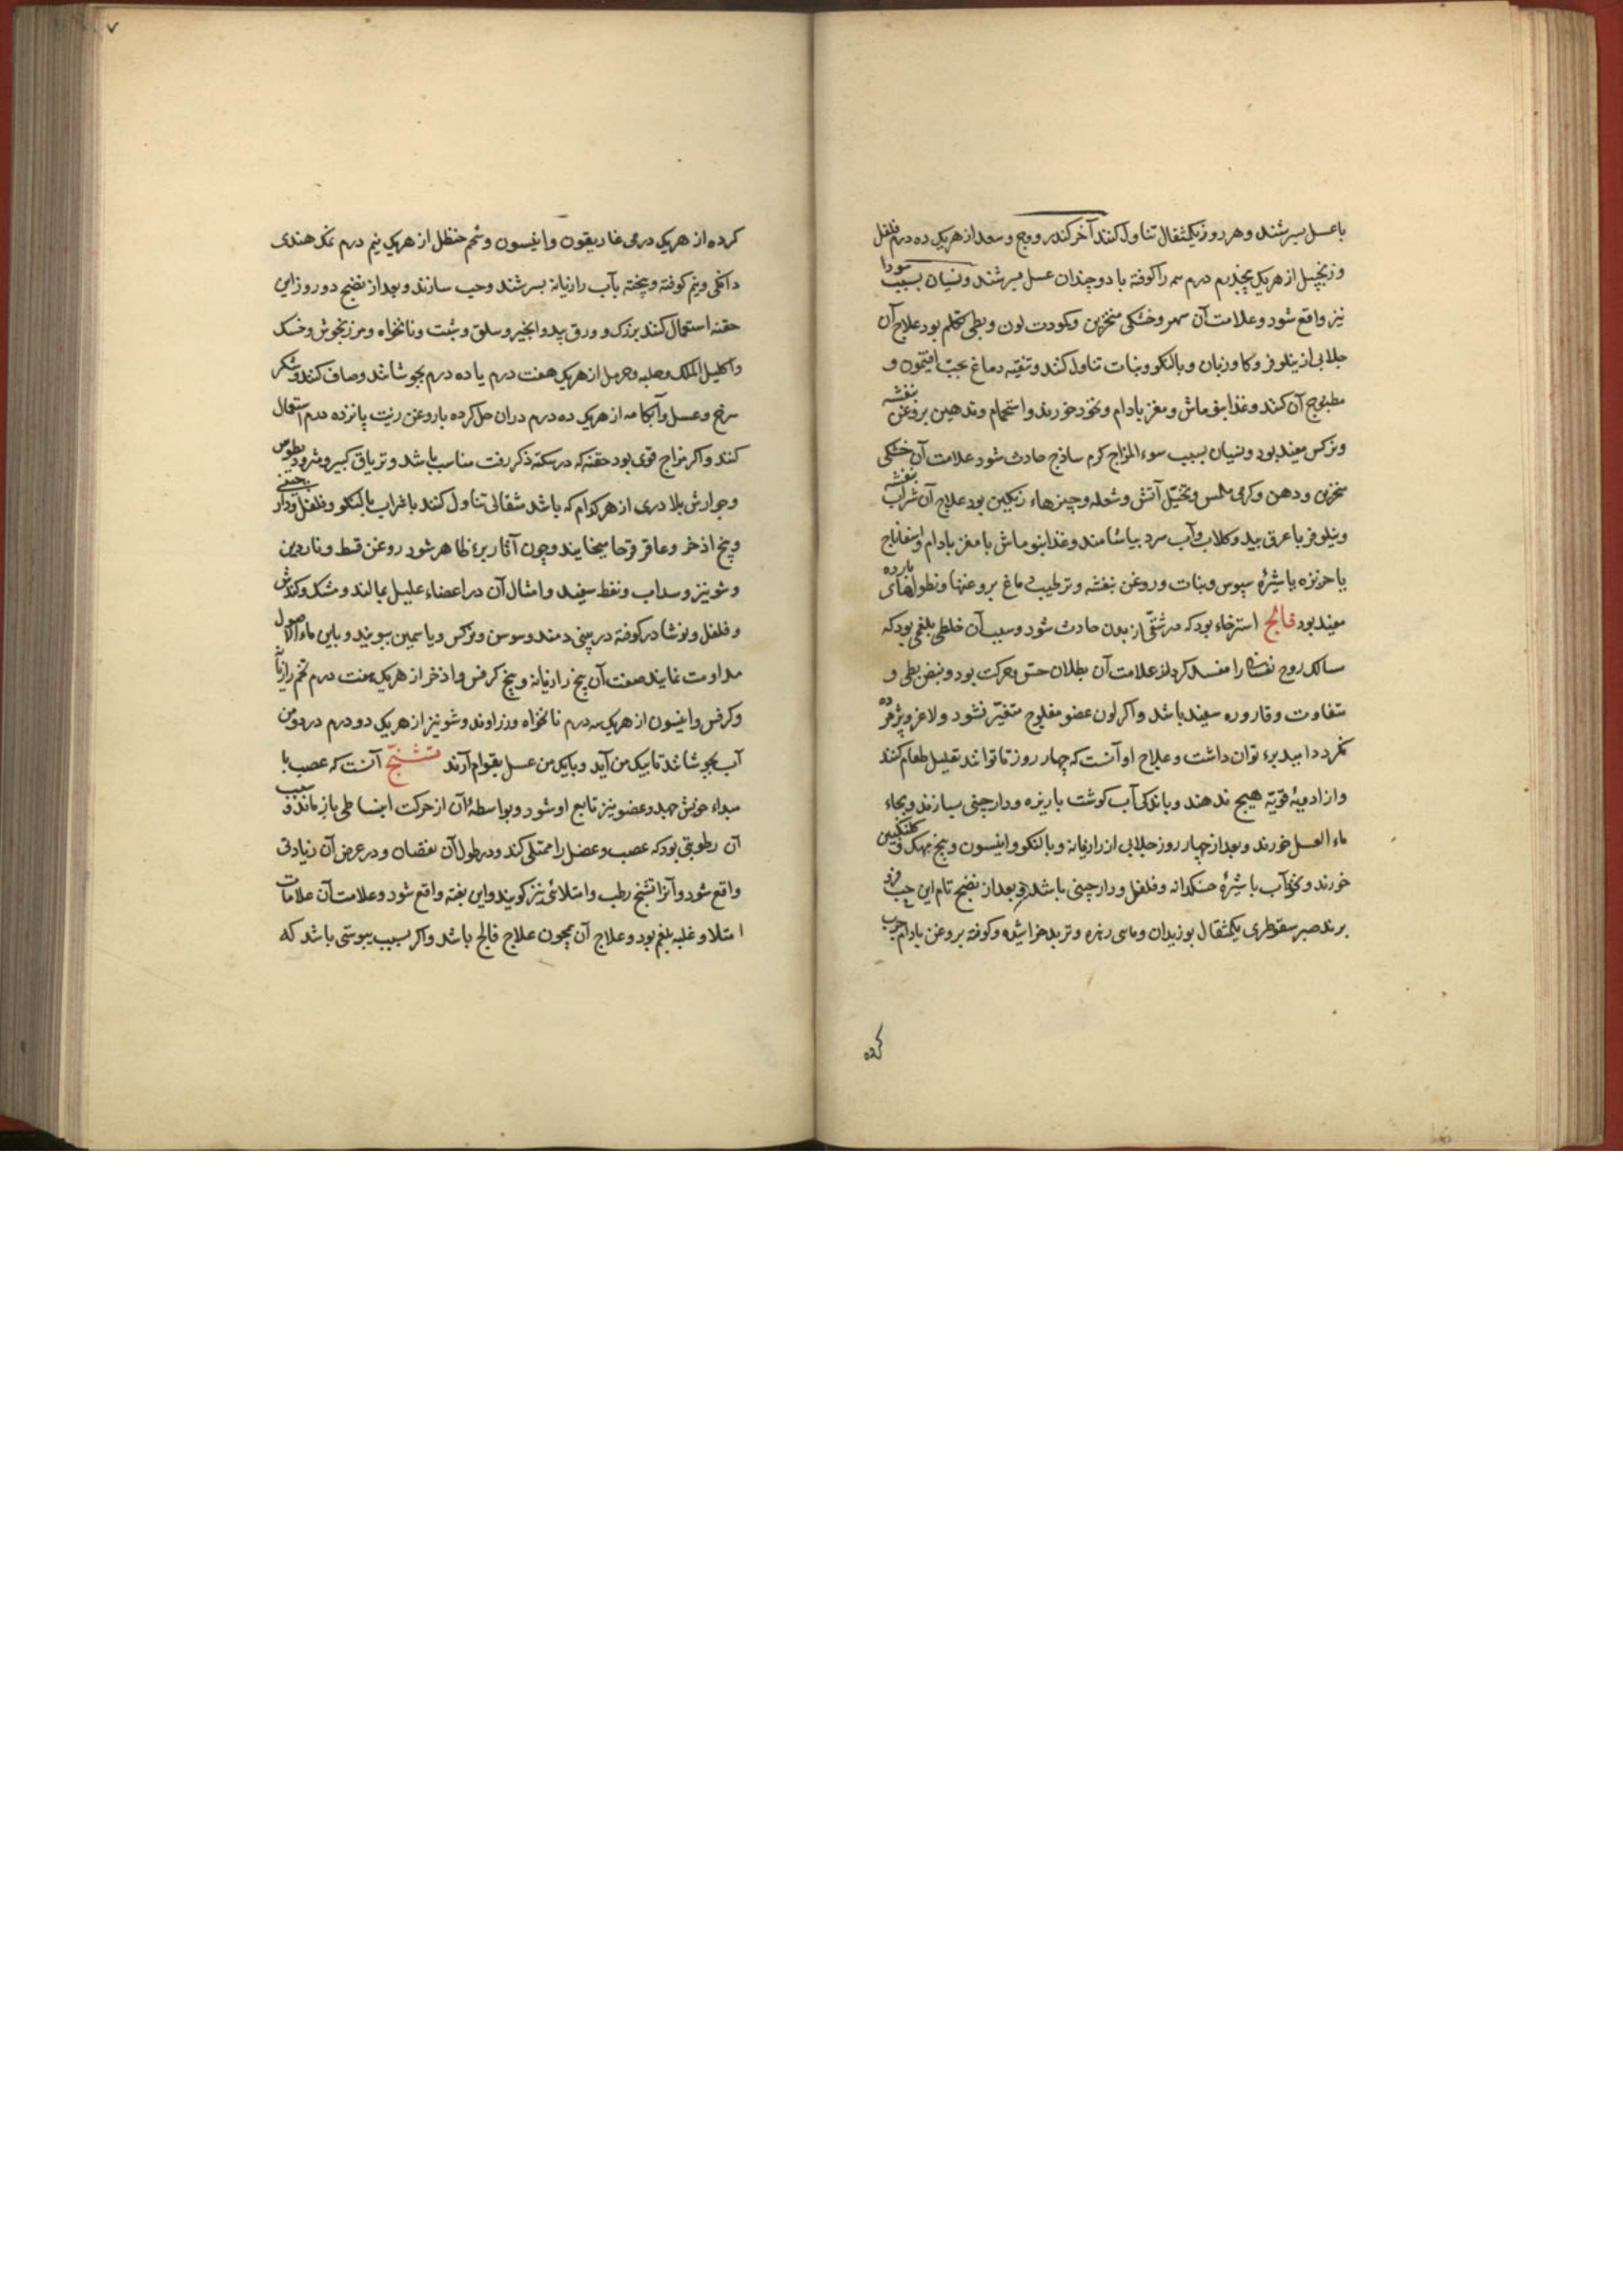 با عسل بسرشند و هر روز یکمثقال تناول کنند آخر کندر و وج و سعد از هریک ده درم فلفل
و زنجبیل از هریک پنجدرم درم سه را کوفته با دو چندان عسل بسرشند و نسیان بسبب سودا
نیز واقع شود و علامت آن سهر و خشکی منخرین و کمودت لون و بطی تکلم بود علاج آن
جلابی از نیلوفر و کاوزبان و بالنکو و نبات تناول کنند و تنقیه دماغ بحب افتیمون و
مطبوخ آن کنند و غذا بنو ماش و مغز بادام و نخود خورند و استحمام و تدهین بروغن بنفشه
و نرکس مفید بود و نسیان بسبب سوء المزاج کرم ساذج حادث شود علامت آن خشکی
منخرین و دهن و کرمی ملمس و تخیّل آتش و شعله و چیزهاء رنکین بود علاج آن شراب بنفشه
و نیلوفر با عرق بید و کلاب و آب سرد بیاشامند و غذا بنو ماش با مغز بادام و اسفناج
یا خرنزه با شیرهٔ سبوس و نبات و روغن بنفشه و ترطیب دماغ بروغنها و نطولهای بارده
مفید بود فالج استرخاء بود که در شقّی از بدن حادث شود و سبب آن خلطی بلغمی بود که
سالک روح نفسانی را مفسد کرداند علامت آن بطلان حسّ و حرکت بود و نبض بطی و
متفاوت و قاروره سفید باشد و اکر لون عضو مفلوج متغیّر نشود و لاغر و پژمرده
نکردد امید برء توان داشت و علاج او آنست که چهار روز تا توانند تقلیل طعام کنند
و از ادویهٔ قویّه هیچ ندهند و باندکی آب کوشت با زیره و دارچینی بسازند و بجاء
ماء العسل خورند و بعد از چهار روز جلابی از رازیانه و بالنکو و انیسون و بیخ مهک و کلنکبین
خورند و نخوداب با شیرهٔ خسکدانه و فلفل و دارچینی باشد و بعد از نضج تام این حب فرو
برند صبر سقوطری یکمثقال بوزیدان و ماهی زهره و تربد خراشیده و کوفته بروغن بادام چرب
کرده
۷
کرده از هریک درمی غاریقون و انیسون و شحم حنظل از هریک نیم درم نمک هندی
دانکی و نیم کوفته و بیخته بآب رازیانه بسرشند و حب سازند و بعد از نضج دو روز این
حقنه استعمال کنند بزرک و ورق بیدوانجیر و سلق و شبت و نانخواه و مرزنجوش و خسک
و اکلیل الملک و حلبه و حرمل از هریک هفت درم یا ده درم بجوشانند و صاف کنند و شکر
سرخ و عسل و آبکامه از هریک ده درم دران حل کرده با روغن زیت پانزده درم استعمال
کنند و اکر مزاج قوی بود حقنه که در سکته ذکر رفت مناسب باشد و تریاق کبیر و مثرودیطوس
و جوارش بلادری از هرکدام که باشد مثقالی تناول کنند با شراب بالنکو و فلفل و دارچینی
و بیخ اذخر و عاقرقرحا میخایند و چون آثار برء ظاهر شود روغن قسط و ناردین
و شونیز و سداب و نفط سفید و امثال آن در اعضاء علیل بمالند و مشک و کندش
و فلفل و نوشادر کوفته در بینی دمند و سوسن و نرکس و یاسمین ببویند و باین ماء الاصول
مداومت نمایند صفت آن بیخ رازیانه و بیخ کرفس و اذخر از هریک هفت درم تخم رازیانه
و کرفس و انیسون از هریک سه درم نانخواه و زراوند و شونیز از هریک دو درم در دو من
آب بجوشانند تا بیک من آید و با یک من عسل بقوام آرند تشنّج آنست که عصب با
مبداء خویش جهد و عضو نیز تابع او شود و بواسطهٔ آن از حرکت انبساطی باز ماند و سبب
آن رطوبتی بود که عصب و عضل را ممتلی کند و در طول آن نقصان و در عرض آن زیادتی
واقع شود و آنرا تشنج رطب و امتلائی نیز کویند و این بغته واقع شود و علامت آن علامات
امتلا و غلبه بلغم بود و علاج آن همچون علاج فالج باشد و اکر بسبب یبوستی باشد که